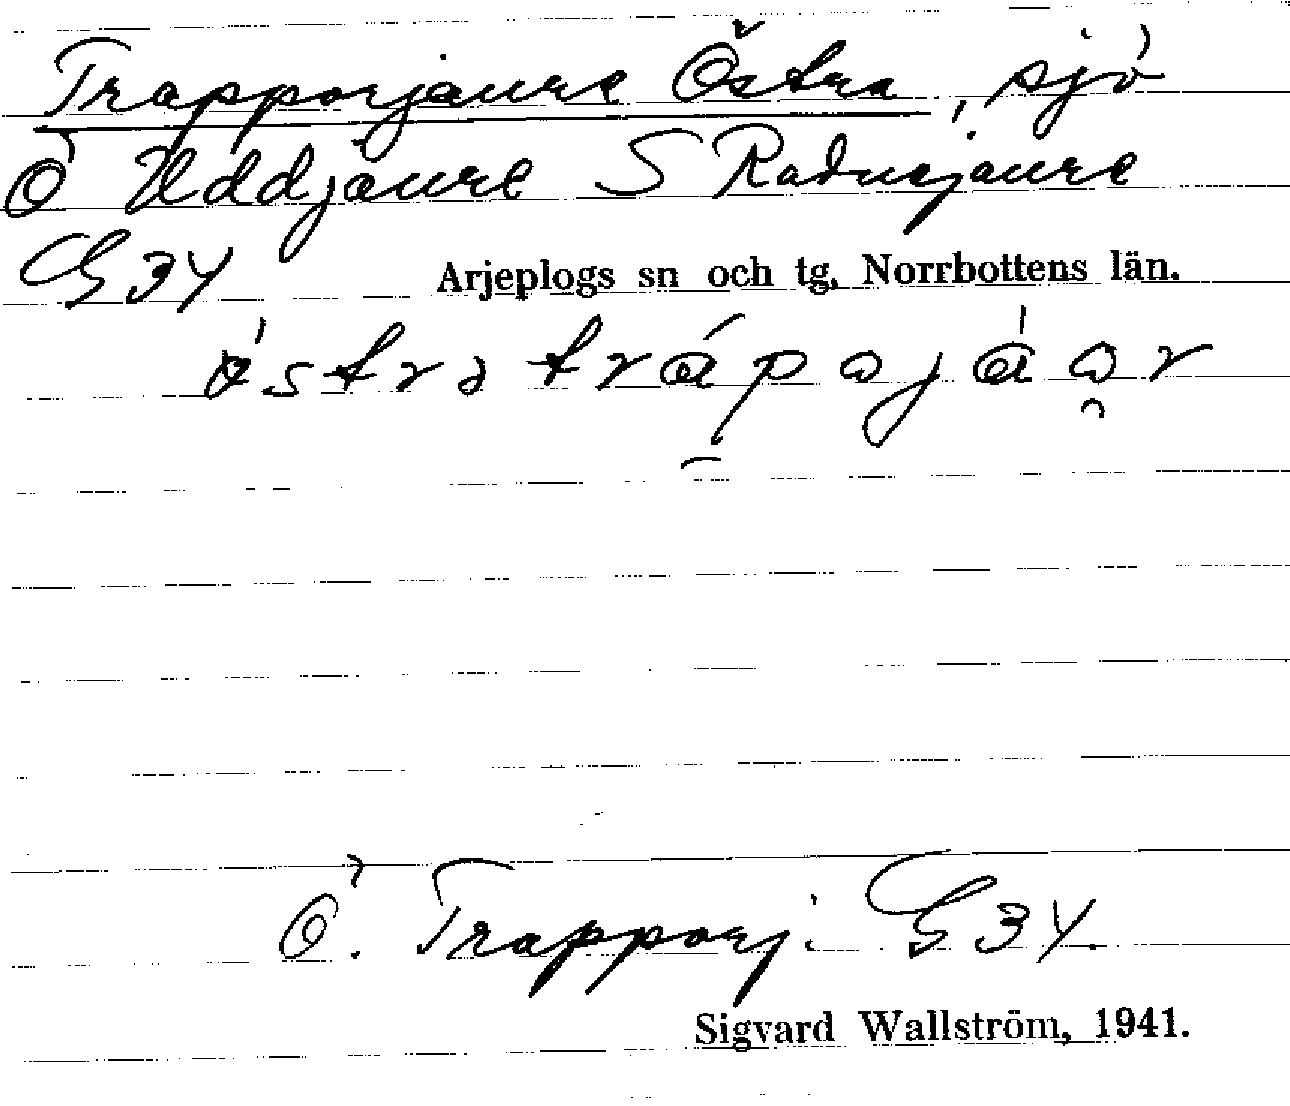 Trapporjaure Östra, sjö
Ö Uddjaure S Radnejaure
G 34
Arjeplogs sn och tg. Norrbottens län.
Ö. Trapporj. G 34.
Sigvard Wallström, 1941.